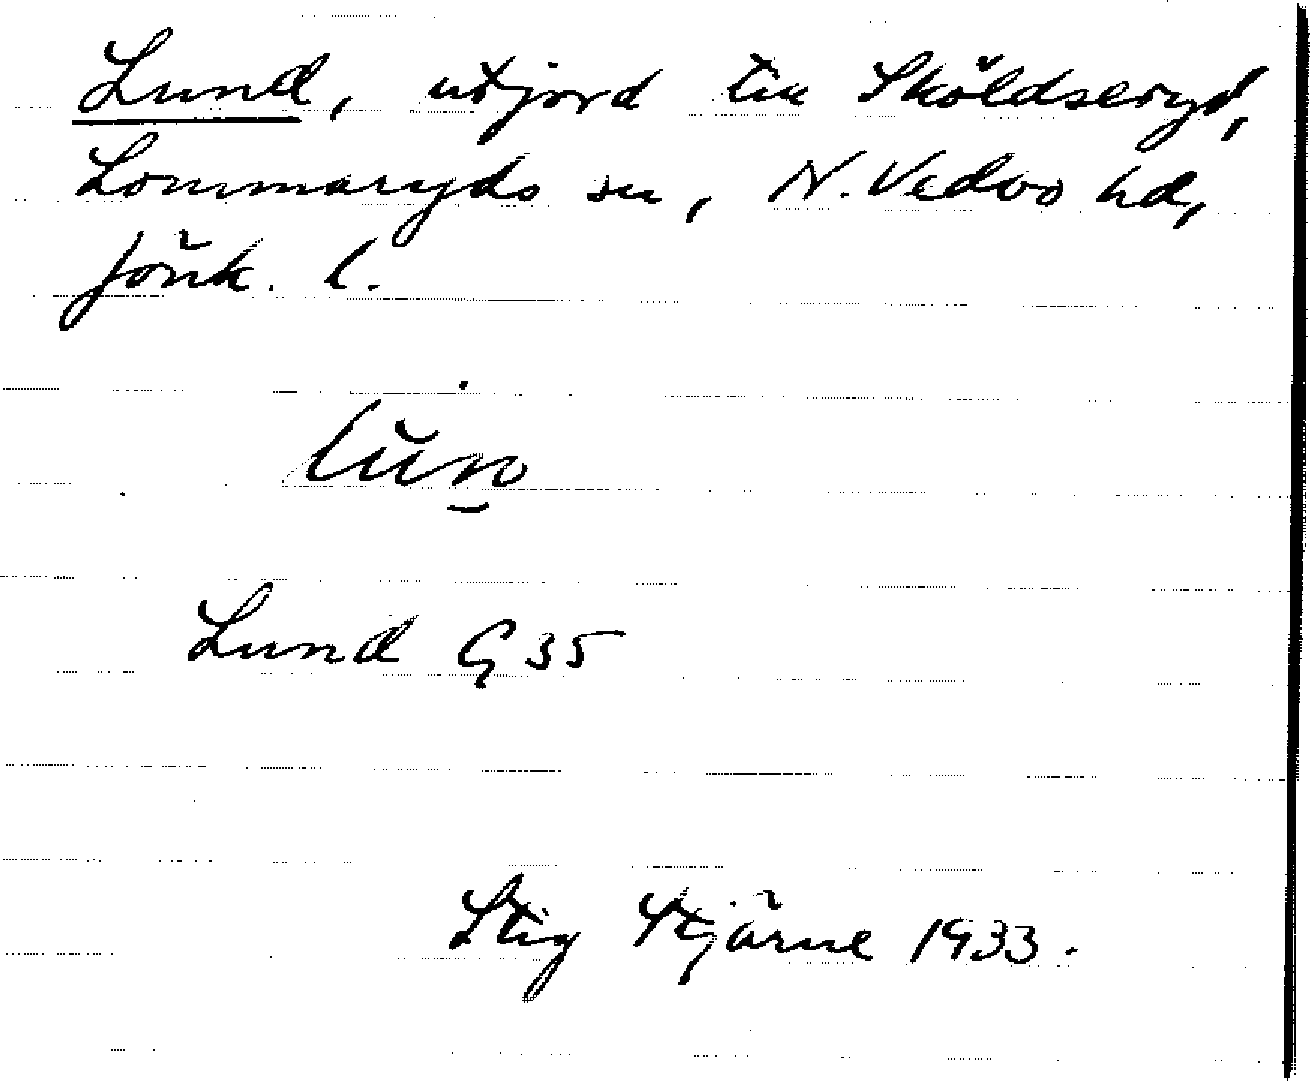 Lund, utjord till Sköldseryd,
Lommaryds sn, N. Vedbo hd,
Jönk. l.
Lund G 35
Stig Stjärne 1933.